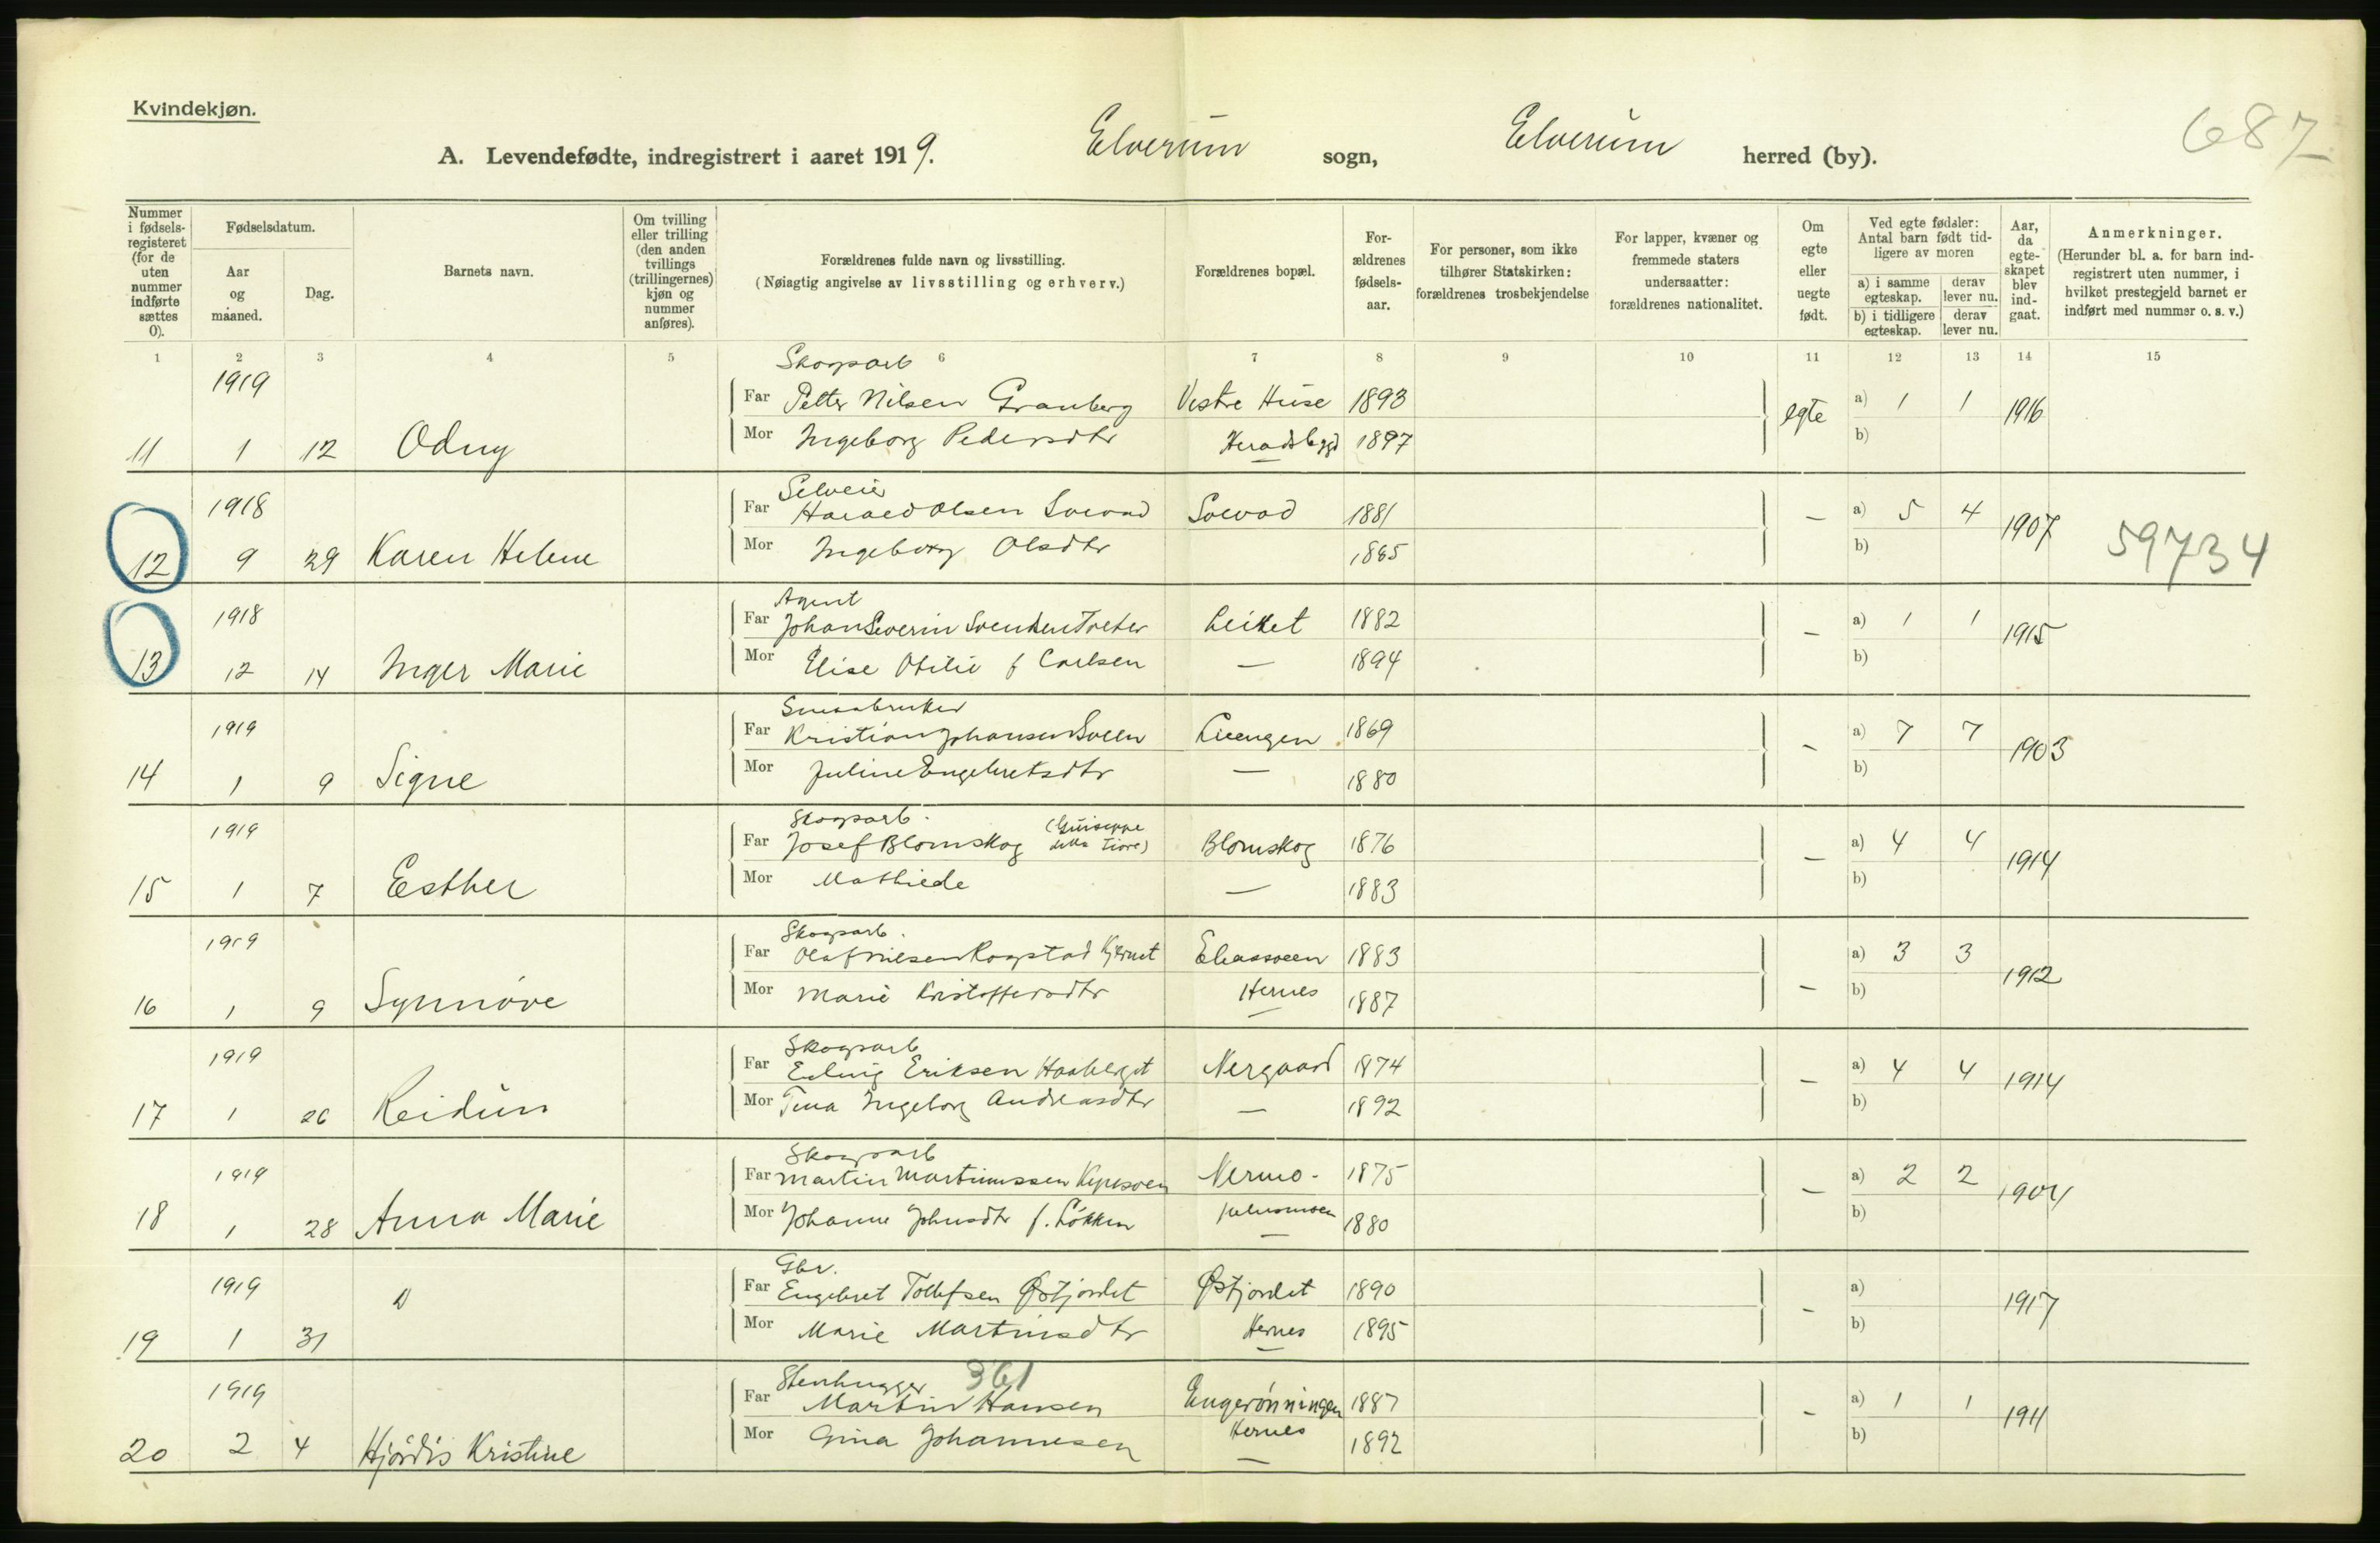 Kvindekjøn.
687
A. Levendefødte, indregistrert i aaret 1919. Elverum sogn, Elverum herred (by).
Nummer i fødselsregisteret (for de uten nummer indførte sættes 0).
Fødselsdatum.
Aar og maaned.
Dag.
Barnets navn.
Om tvilling eller trilling (den anden tvillings (trillingernes) kjøn og nummer anføres).
Forældrenes fulde navn og livsstilling.
(Nøiagtig angivelse av livsstilling og erhverv.)
Forældrenes bopæl.
Forældrenes fødselsaar.
For personer, som ikke tilhører Statskirken: forældrenes trosbekjendelse
For lapper, kvæner og fremmede staters undersaatter: forældrenes nationalitet.
Om egte eller uegte født.
Ved egte fødsler: Antal barn født tidligere av moren
a) i samme egteskap. derav lever nu.
b) i tidligere egteskap. derav lever nu.
Aar, da egteskapet blev indgaat.
Anmerkninger.
(Herunder bl. a. for barn indregistrert uten nummer, i hvilket prestegjeld barnet er indført med nummer o. s. v.)
1 2 3 4 5 6 7 8 9 10 11 12 13 14 15
1919 Skogsarb
Far Petter Nilsen Granberg Vestre Huse 1893 egte a) 1 1 1916
11 1 12 Odny Mor Ingeborg Pedersdtr Heradsbygd 1897 b)
1918 Selveier
Far Harald Olsen Sorvad 1881 — a) 5 4 1907
12 9 29 Karen Helene Mor Ingeborg Olsdtr b) 59734
1918 Agent
Far Johan Severin Svendsen Leiket 1882 — a) 1 1 1915
13 12 14 Inger Marie Mor Elise Otilie f Carlsen — 1894 b)
1919 Smaabruker
Far Kristian Johansen 1869 — a) 7 7 1903
14 1 9 Signe Mor Juline Engebretsdtr — 1880 b)
1919 Skogsarb.
Far Josef Blomskog (Guiseppe della Fiore) Blomskog 1876 — a) 4 4 1914
15 1 7 Esther Mor Mathilde — 1883 b)
1919 Skogsarb.
Far Olaf Nilsen Rogstad 1883 — a) 3 3 1912
16 1 9 Synnöve Mor Marie Kristoffersdtr Hernes 1887 b)
1919 Skogsarb
Far Eriksen Haaberget Nergaard 1874 — a) 4 4 1914
17 1 26 Reidun Mor Tina Ingeborg Andreasdtr — 1892 b)
1919 Skogsarb
Far Martin Martinussen Nermo- 1875 — a) 2 2 1904
18 1 28 Anna Marie Mor Johanne Johnsdtr f. Løkken 1880 b)
1919 Gbr.
Far Engebret Tollefsen Østjordet Østjordet 1890 — a) 1917
19 1 31 Mor Marie Martinsdtr Hernes 1895 b)
1919 Stenhugger 361
Far Martin Hansen Engerönningen 1887 — a) 1 1 1911
20 2 4 Hjördis Kristine Mor Gina Johannesen Hernes 1892 b)